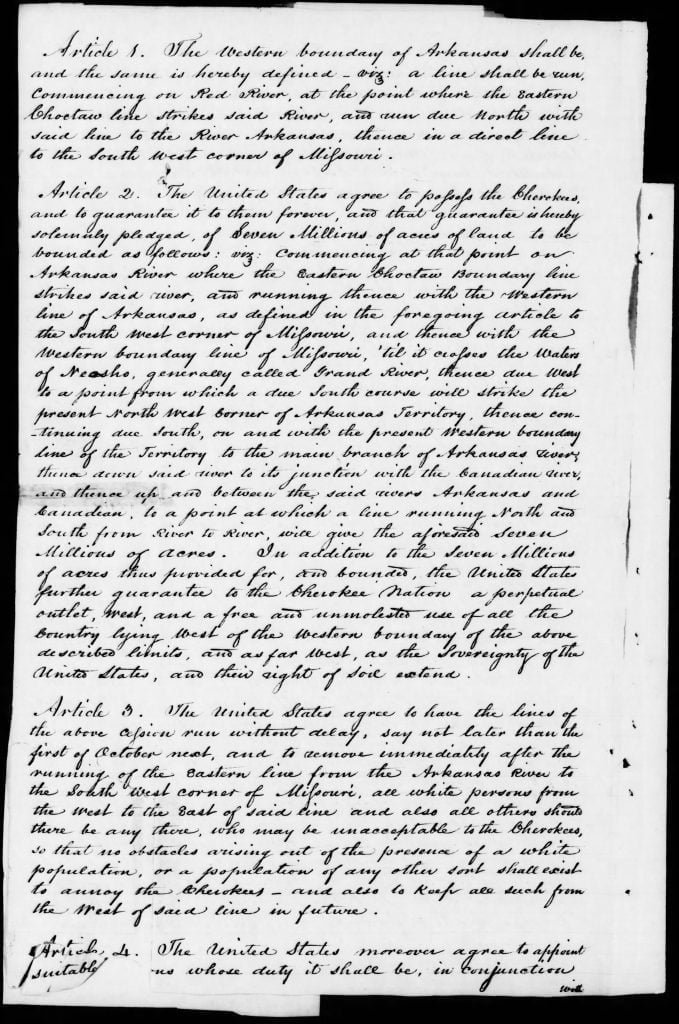 Article 1. The Western boundary of Arkansas shall be,
and the same is hereby defined – viz: a line shall be run,
commencing on Red River, at the point where the Eastern
Choctaw line strikes said River, and run due North with
said line to the River Arkansas, thence in a direct line
to the South West corner of Missouri.
Article 2. The United States agree to possess the Cherokees,
and to guarantee it to them forever, and that guarantee is hereby
solemnly pledged, of Seven Millions of acres of land to be
bounded as follows: viz: Commencing at that point on
Arkansas River where the Eastern Choctaw Boundary line
strikes said river, and running thence with the Western
line of Arkansas, as defined in the foregoing article to
the South West corner of Missouri, and thence with the
Western boundary line of Missouri, 'til it crosses the Waters
of Neosho, generally called Grand River, thence due West
to a point from which a due South course will strike the
present North West Corner of Arkansas Territory, thence con-
-tinuing due South, on and with the present Western boundary
line of the Territory to the main branch of Arkansas river,
thence down said river to its junction with the Canadian river,
and thence up and between the said rivers Arkansas and
Canadian, to a point at which a line running North and
South from River to River, will give the aforesaid Seven
Millions of acres. In addition to the Seven Millions
of acres thus provided for, and bounded, the United States
further guarantee to the Cherokee Nation a perpetual
outlet, West, and a free and unmolested use of all the
Country lying West of the Western boundary of the above
described limits, and as far West, as the Sovereignty of the
United States, and their right of Soil extend.
Article 3. The United States agree to have the lines of
the above cession run without delay, say not later than the
first of October next, and to remove immediately after the
running of the Eastern line from the Arkansas River to
the South West corner of Missouri, all white persons from
the West to the East of said line and also all others should
there be any there, who may be unacceptable to the Cherokees,
so that no obstacles arising out of the presence of a white
population, or a population of any other sort shall exist
to annoy the Cherokees – and also to keep all such from
the West of said line in future.
Article 4. The United States moreover agree to appoint
suitable ns whose duty it shall be, in conjunction
with